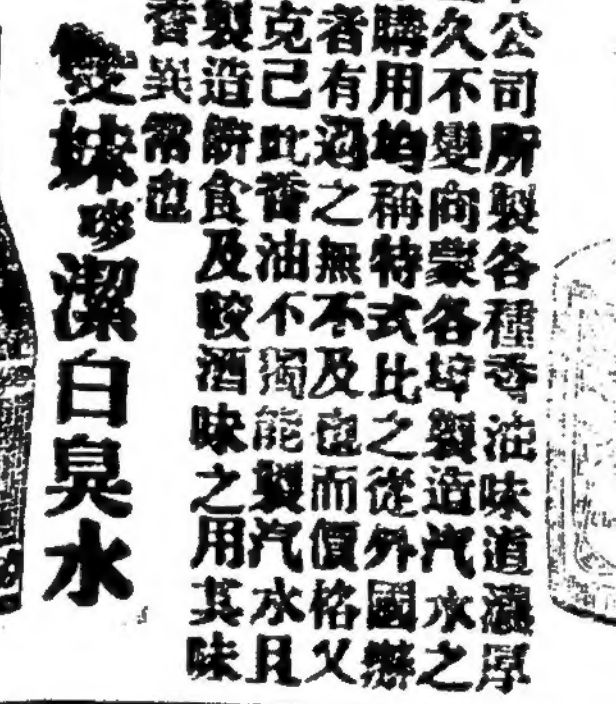 公司所製各種香油味道濃厚
久不變向蒙各埠製造汽水之
購用均稱特式比之從外國辦
者有過之無不及也而價格又
克己此香油不獨能製汽水且
製造餅食及較酒味之用其味
香異常也
雙妹嘜潔白臭水